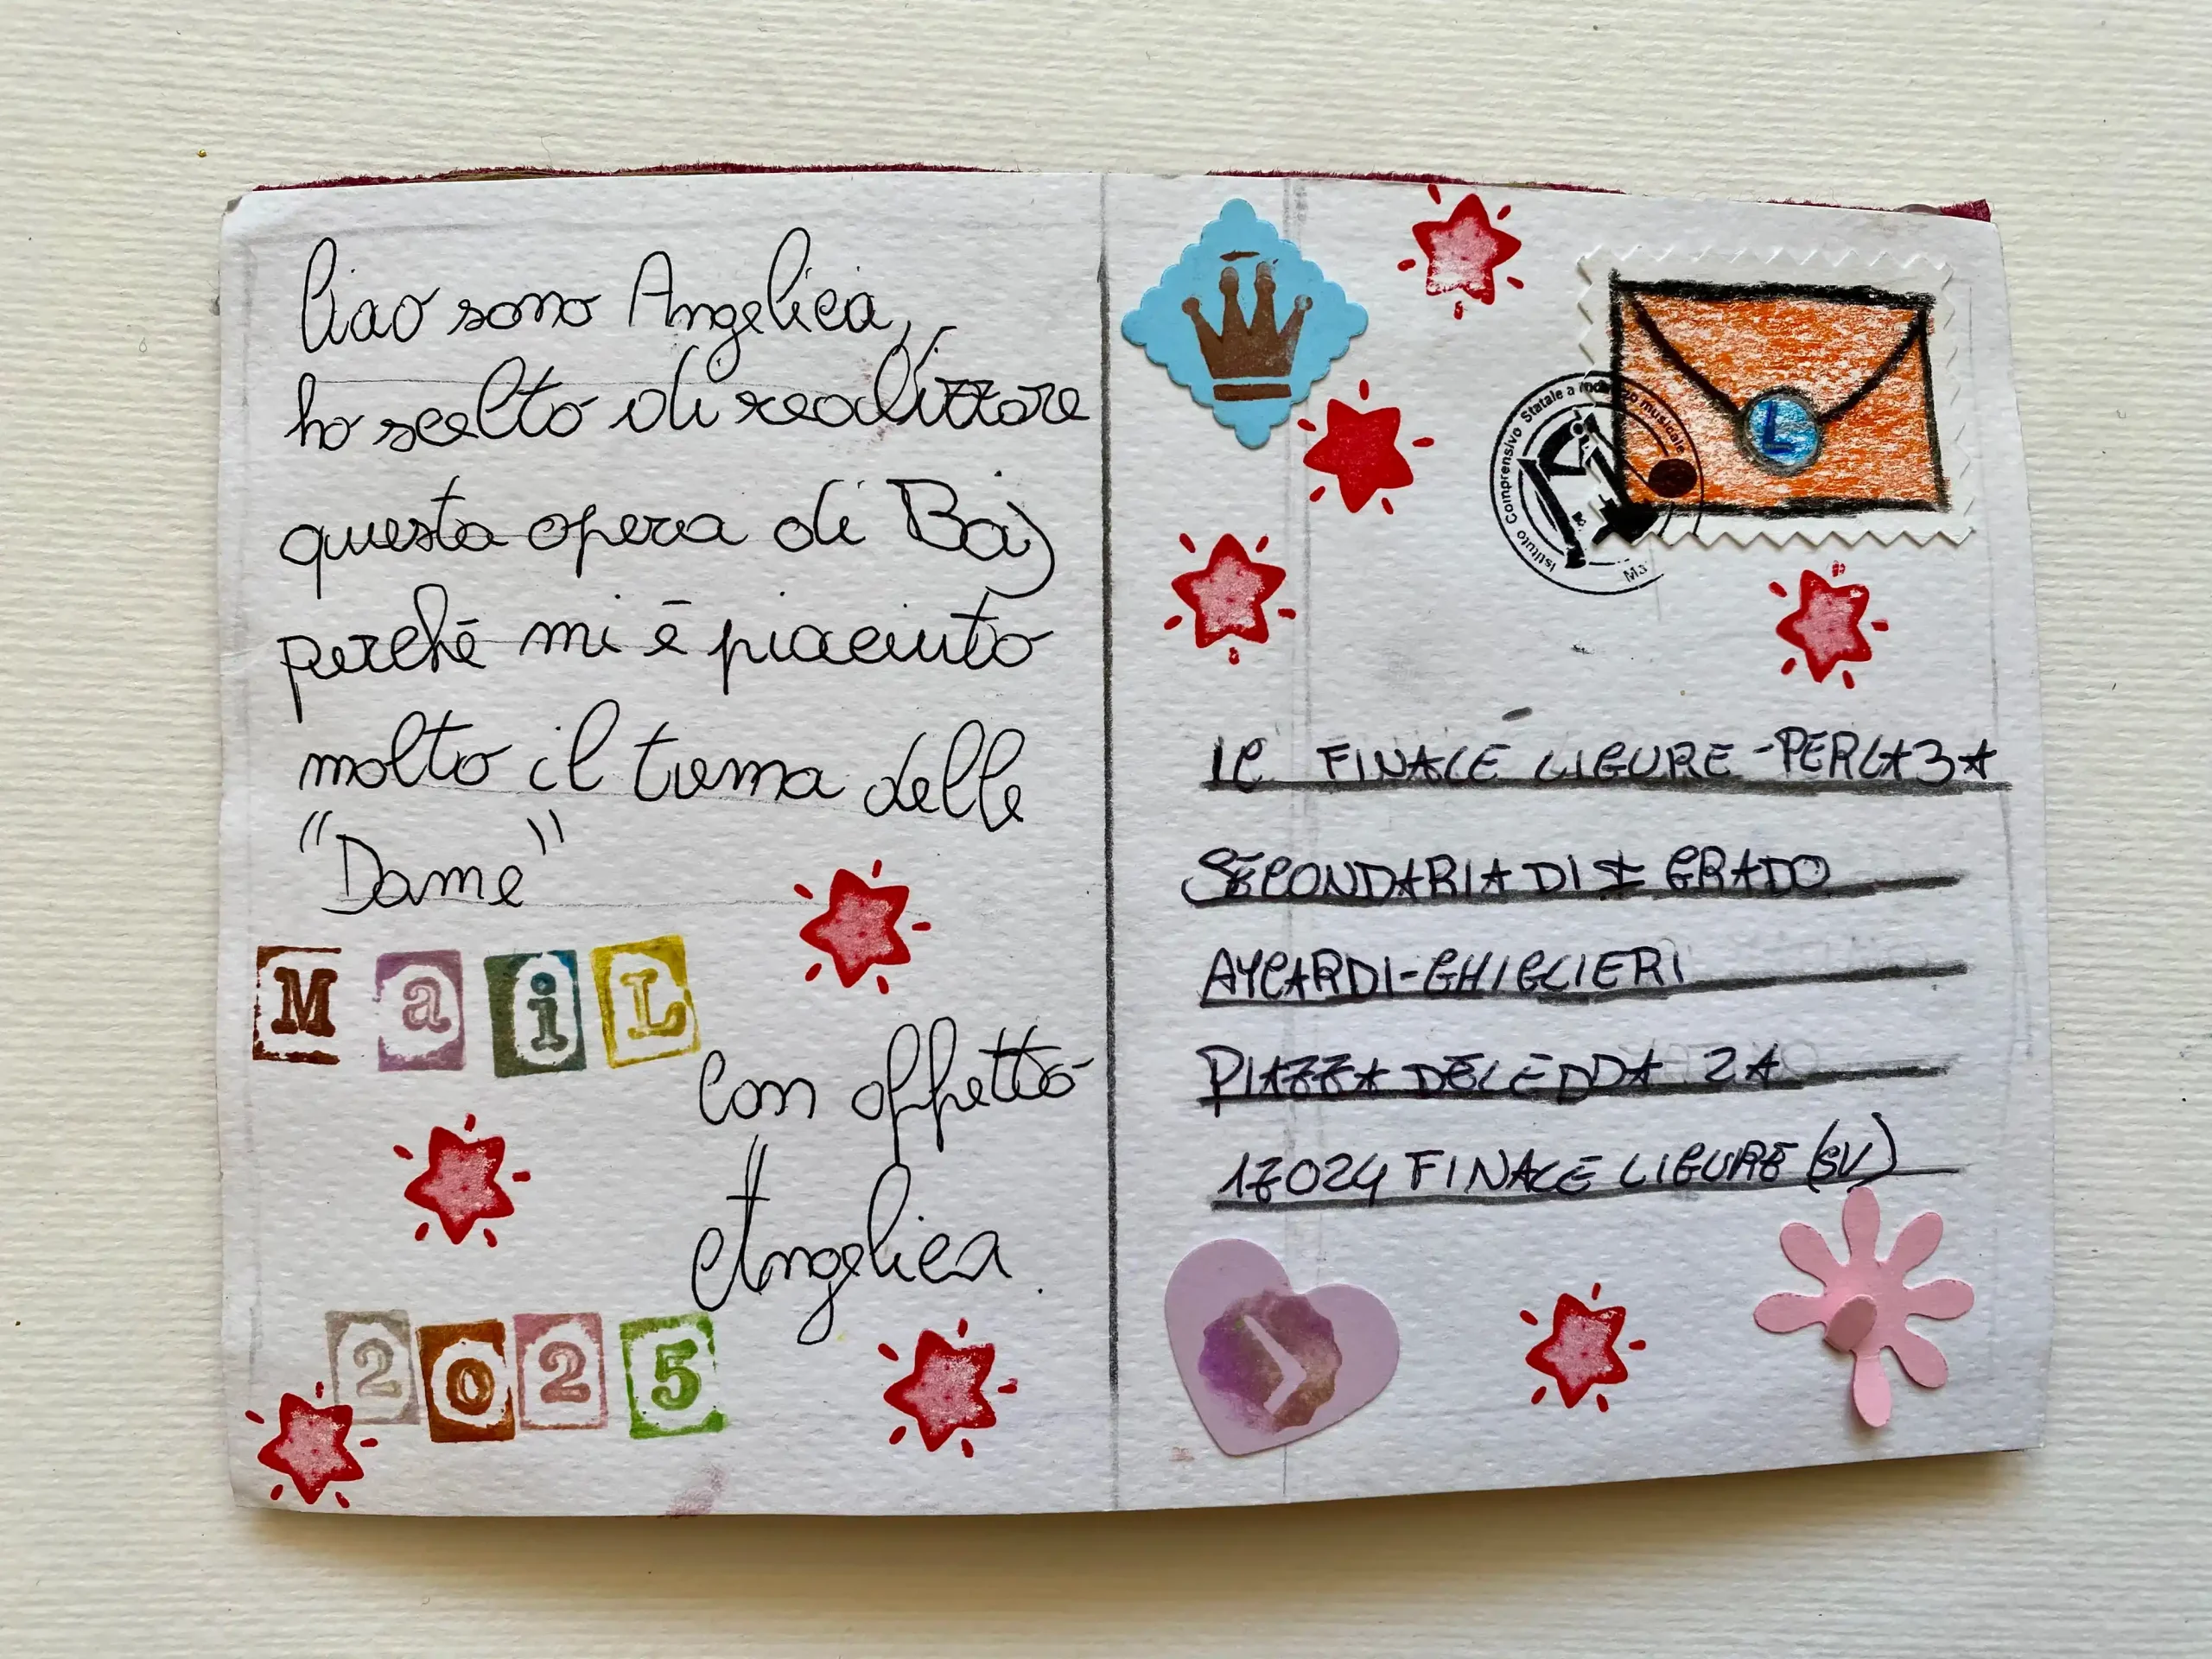 Ciao sono Angelica,
ho scelto di realizzare
questa opera di Baj
perchē mi ē piaciuto
molto il tema delle
"Dame"
MaiL
Con affetto
Angelica.
2025
Istituto Comprensivo Statale a indirizzo musicale
L
IC FINALE LIGURE - PER LA 3A
SECONDARIA DI I GRADO
AYCARDI-GHIGLIERI
PIAZZA DELEDDA 2A
17024 FINALE LIGURE (SV)